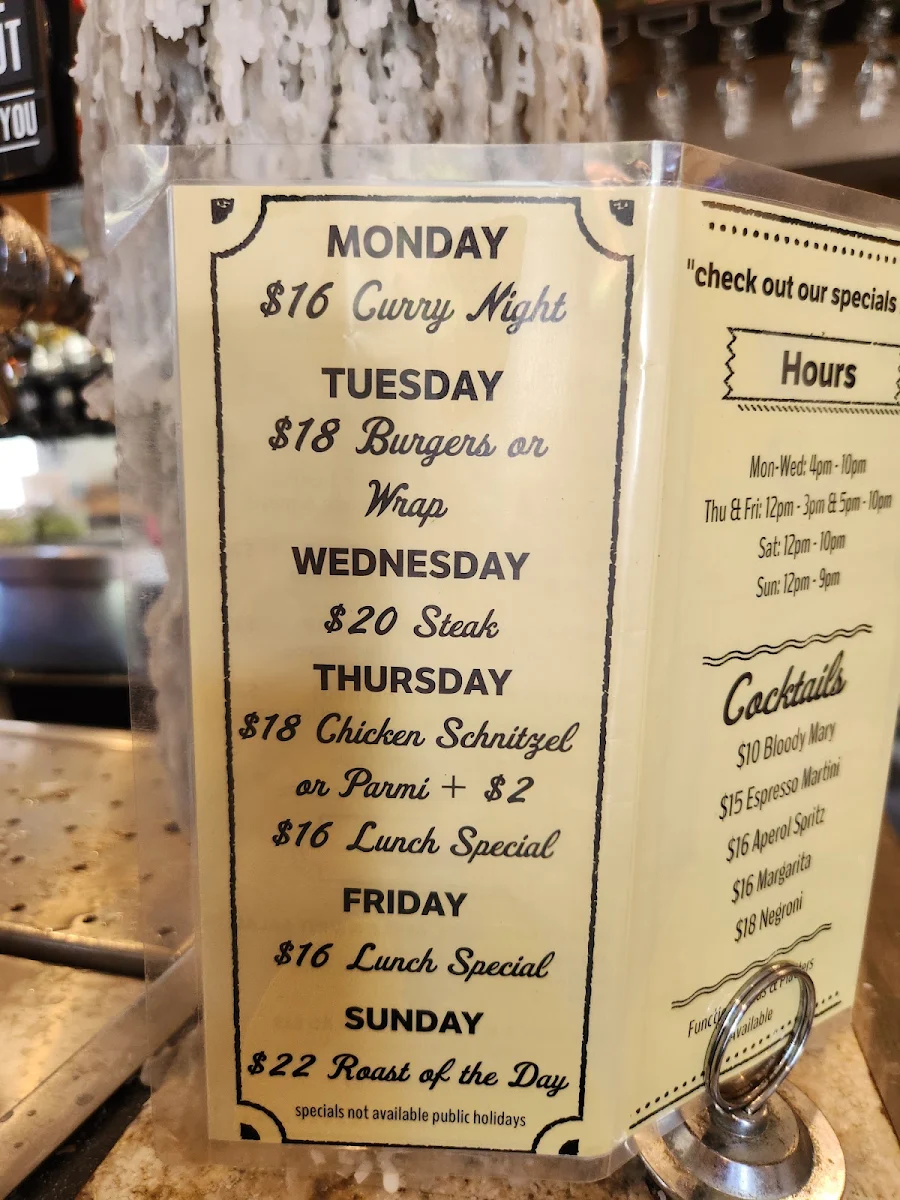 UT
YOU
MONDAY
$16 Curry Night
TUESDAY
$18 Burgers or
Wrap
WEDNESDAY
$20 Steak
THURSDAY
$18 Chicken Schnitzel
or Parmi + $2
$16 Lunch Special
FRIDAY
$16 Lunch Special
SUNDAY
$22 Roast of the Day
specials not available public holidays
"check out our specials
Hours
Mon-Wed: 4pm - 10pm
Thu & Fri: 12pm - 3pm & 5pm - 10pm
Sat: 12pm - 10pm
Sun: 12pm - 9pm
Cocktails
$10 Bloody Mary
$15 Espresso Martini
$16 Aperol Spritz
$16 Margarita
$18 Negroni
Available